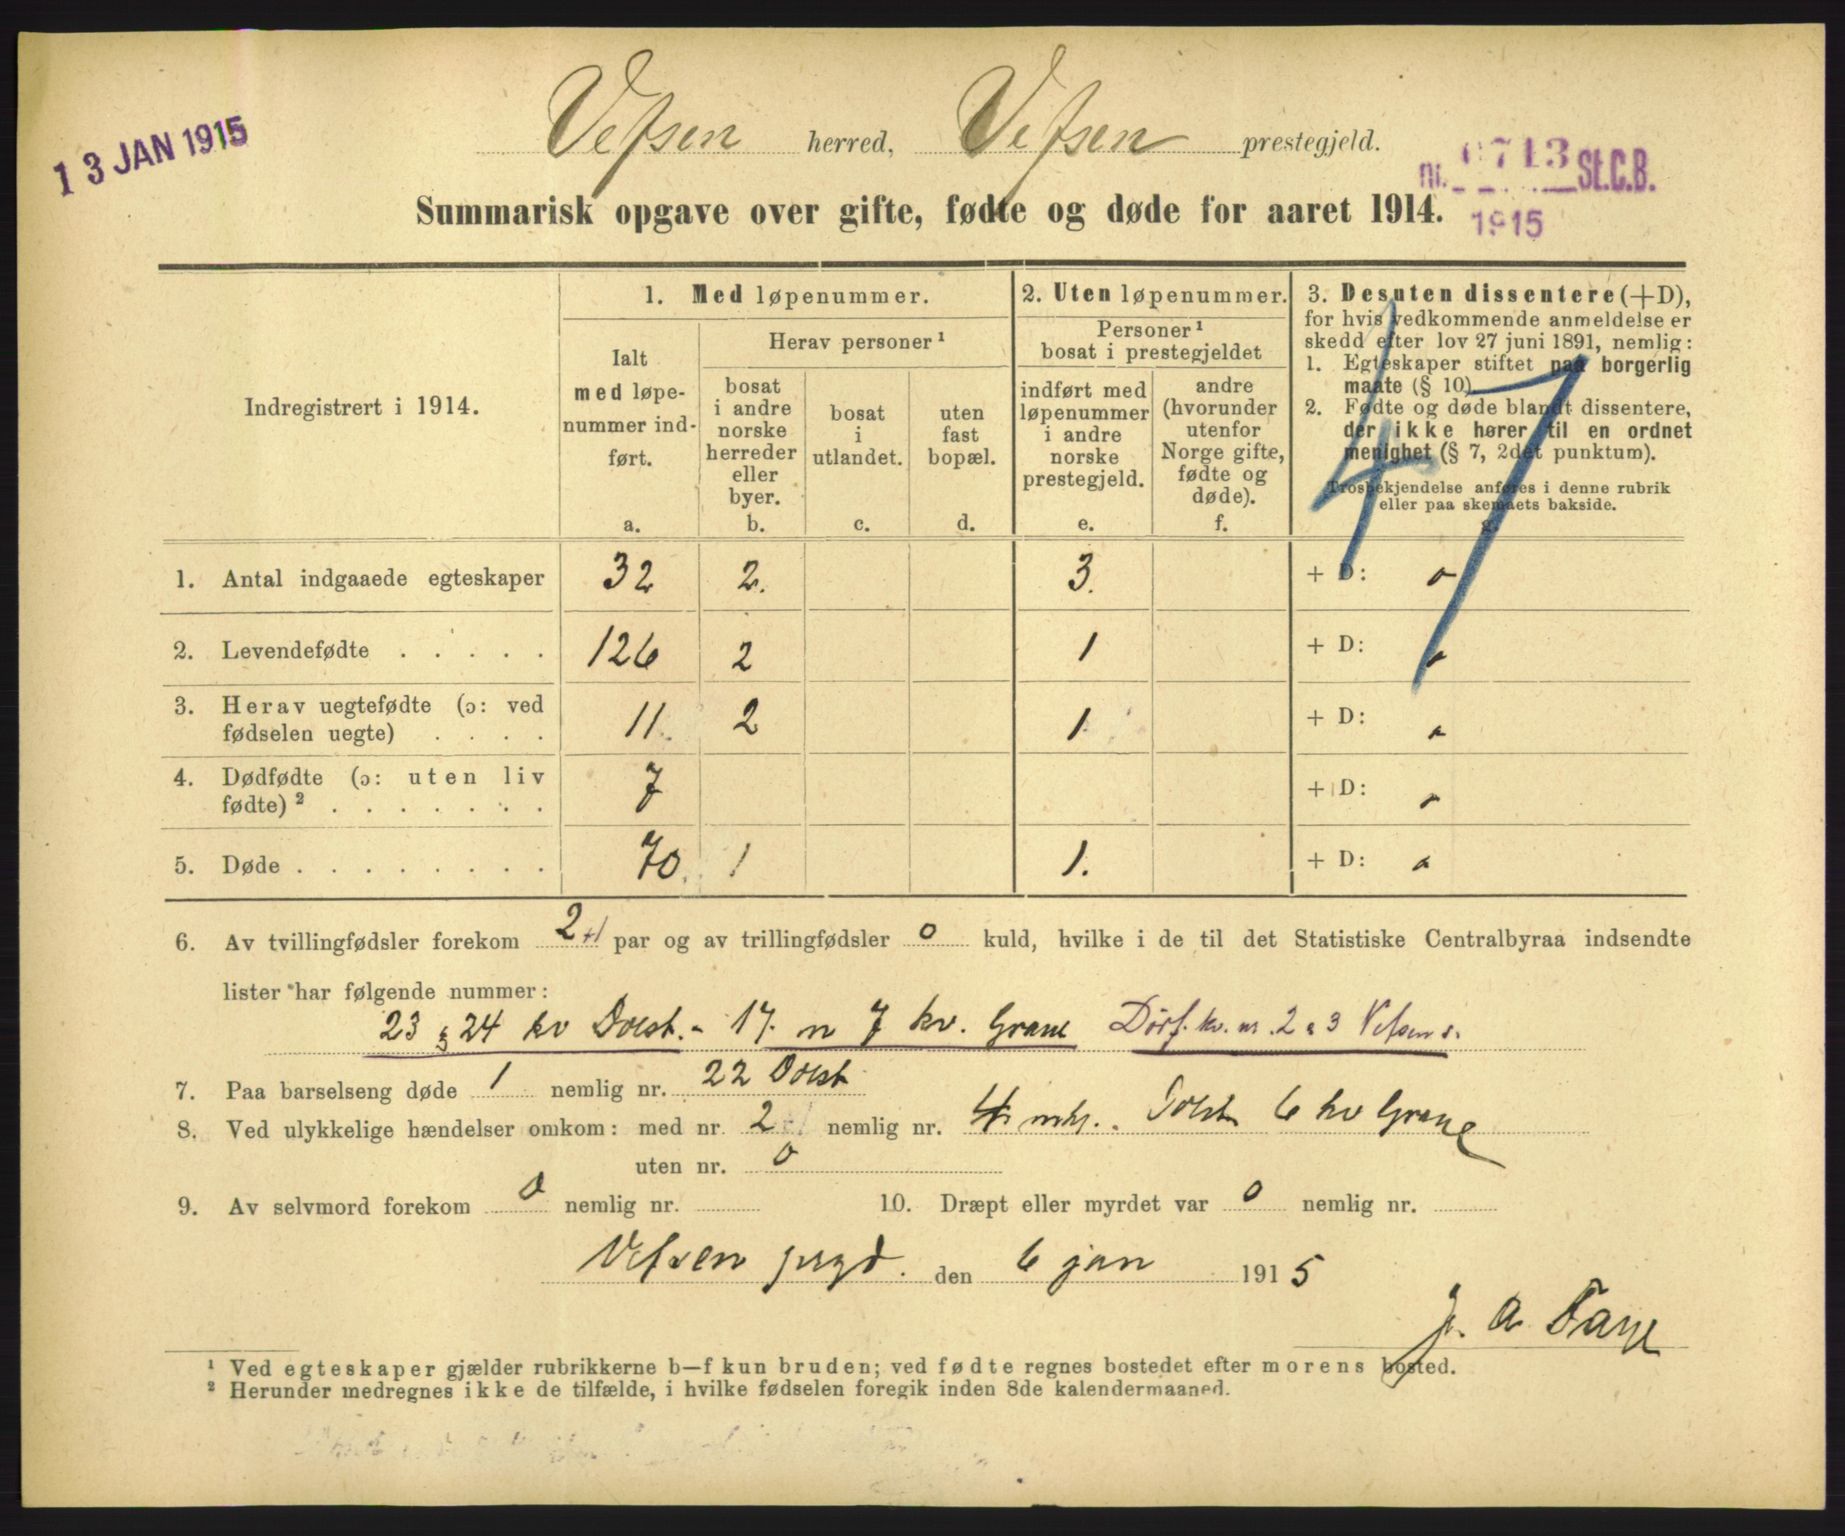 13 JAN 1915
Vefsen herred, Vefsen prestegjeld.
nr. 0713 St.C.B.
1915
Summarisk opgave over gifte, fødte og døde for aaret 1914.
Indregistrert i 1914.
1. Med løpenummer.
Ialt
med løpe-
nummer ind-
ført.
a.
Herav personer ¹
bosat
i andre
norske
herreder
eller
byer.
b.
bosat
i
utlandet.
c.
uten
fast
bopæl.
d.
2. Uten løpenummer.
Personer ¹
bosat i prestegjeldet
indført med
løpenummer
i andre
norske
prestegjeld.
e.
andre
(hvorunder
utenfor
Norge gifte,
fødte og
døde).
f.
3. Desuten dissentere (+D),
for hvis vedkommende anmeldelse er
skedd efter lov 27 juni 1891, nemlig:
1. Egteskaper stiftet paa borgerlig
maate (§ 10).
2. Fødte og døde blandt dissentere,
der ikke hører til en ordnet
menighet (§ 7, 2det punktum).
Trosbekjendelse anføres i denne rubrik
eller paa skemaets bakside.
g.
47
1. Antal indgaaede egteskaper 32 2. 3. + D: 0
2. Levendefødte . . . . . 126 2 1 + D: 0
3. Herav uegtefødte (ɔ: ved
fødselen uegte) . . . . 11. 2 1 + D: 0
4. Dødfødte (ɔ: uten liv
fødte) ² . . . . . . . 7 + D: 0
5. Døde . . . . . . . . 70. 1 1. + D: 0
6. Av tvillingfødsler forekom 2+1 par og av trillingfødsler 0 kuld, hvilke i de til det Statistiske Centralbyraa indsendte
lister har følgende nummer:
23 & 24 kv Dolst. - 17. m 7 kv. Grane Dødf. kv. nr. 2 & 3 Vefsen s.
7. Paa barselseng døde 1 nemlig nr. 22 Dolst
8. Ved ulykkelige hændelser omkom: med nr. 2 nemlig nr. 4 mk. Dolst 6 kv Grane
uten nr. 0
9. Av selvmord forekom 0 nemlig nr. 10. Dræpt eller myrdet var 0 nemlig nr.
Vefsen prgd. den 6 jan 1915
J. A. Faye
¹ Ved egteskaper gjælder rubrikkerne b—f kun bruden; ved fødte regnes bostedet efter morens bosted.
² Herunder medregnes ikke de tilfælde, i hvilke fødselen foregik inden 8de kalendermaaned.